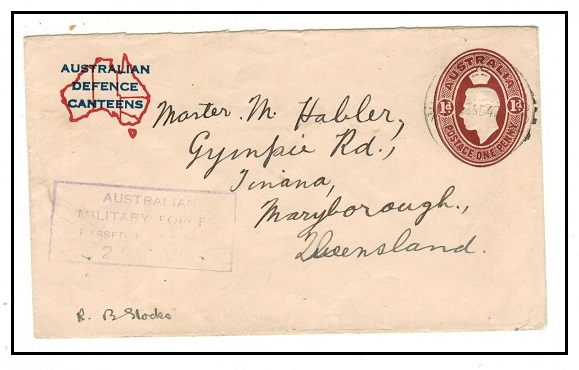 AUSTRALIAN
DEFENCE
CANTEENS
AUSTRALIA
1d 1d
POSTAGE ONE PENNY
Master. M. Habler,
Gympie Rd.,
Tinana,
Maryborough.,
Queensland.
AUSTRALIAN
MILITARY FORCES
PASSED
2
R. B Stocks